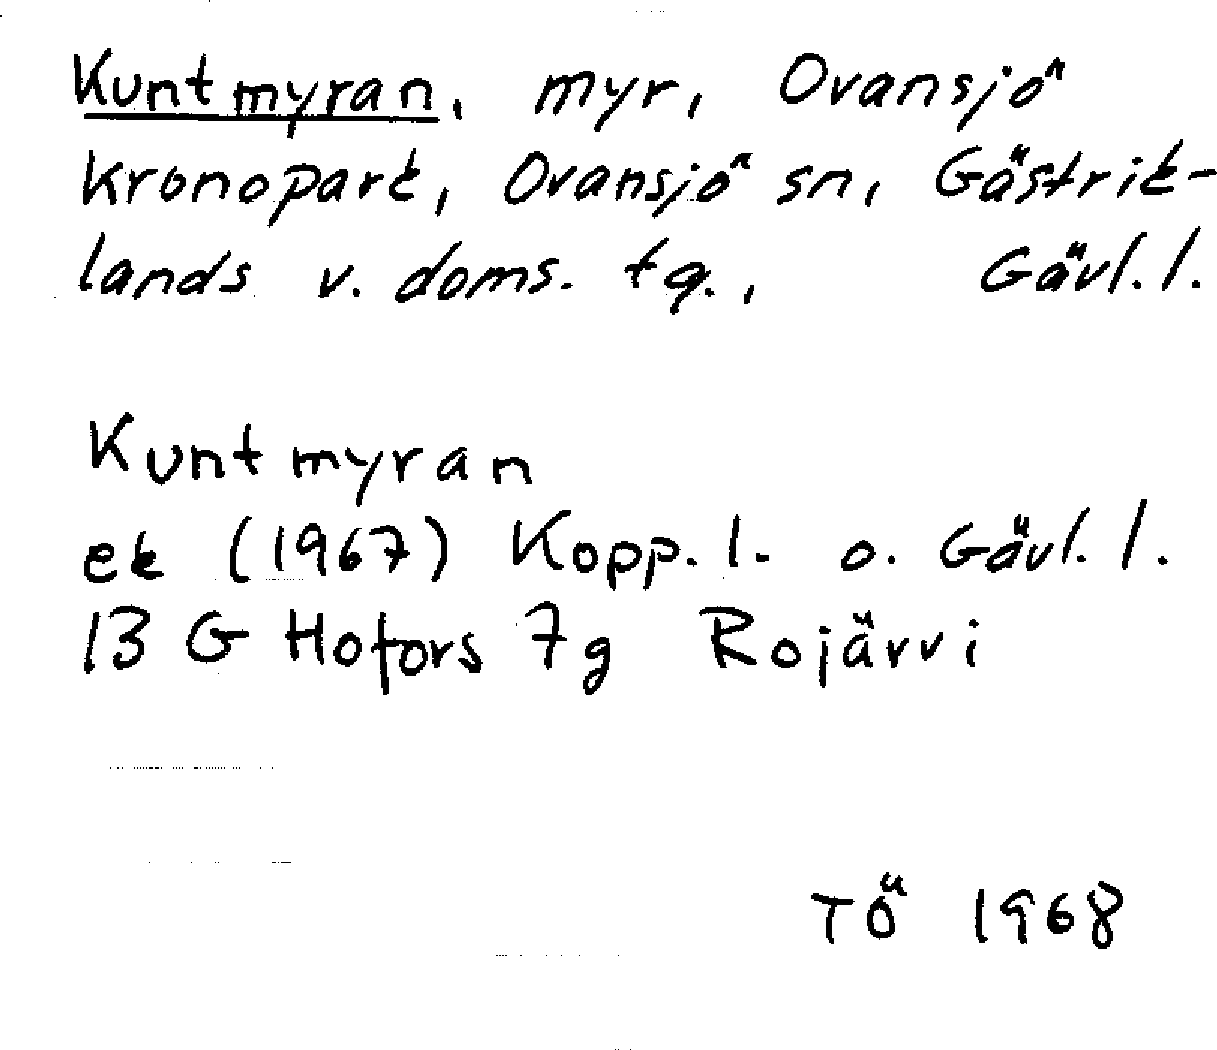 Kuntmyran, myr, Ovansjö
kronopark, Ovansjö sn, Gästrik-
lands v. doms. tg., Gävl. l.
Kuntmyran
ek (1967) Kopp. l. o. Gävl. l.
13 G Hofors 7g Rojärvi
TÖ 1968